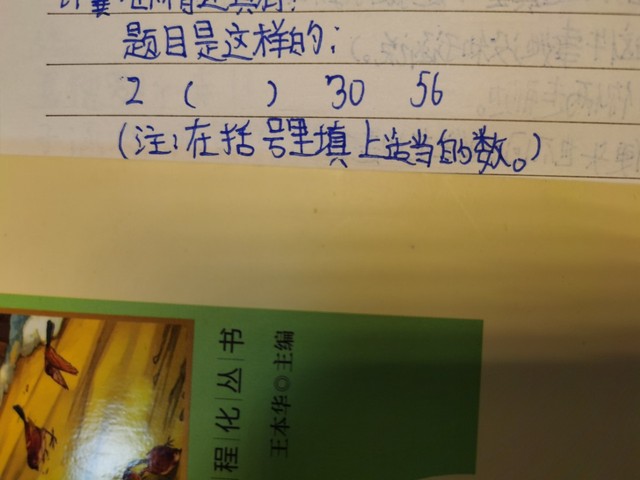 题目是这样的：
2 （ ） 30 56
（注：在括号里填上适当的数。）
程化丛书
王本华◎主编